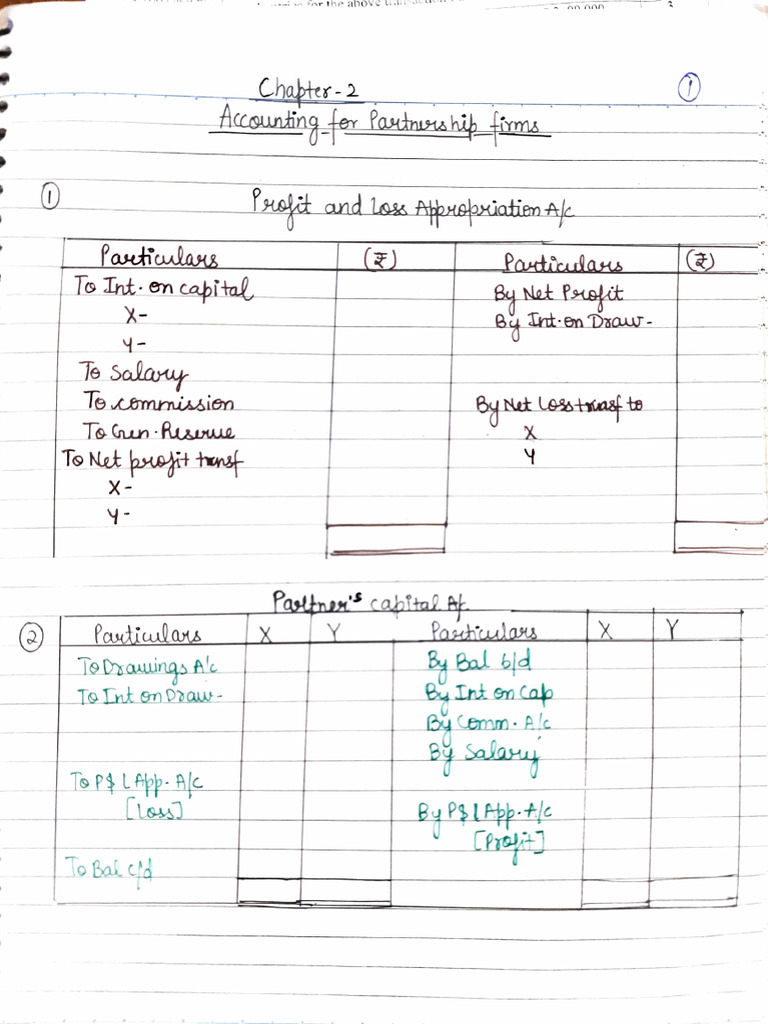 for the above
Chapter-2
1
Accounting for Partnership firms
1
Profit and Loss Appropriation A/c
Particulars (₹) Particulars (₹)
To Int. on capital By Net Profit
X- By Int. on Draw-
Y-
To Salary
To commission By Net Loss transf to
To Gen. Reserve X
To Net profit transf Y
X-
Y-
Partner's capital A/c
2 Particulars X Y Particulars X Y
To Drawings A/c By Bal b/d
To Int on Draw- By Int on Cap
By Comm. A/c
By Salary
To P$ L App. A/c
[Loss] By P$ L App. A/c
[Profit]
To Bal c/d